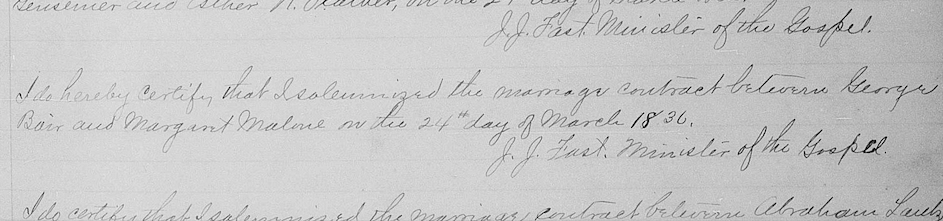 and Esther N. on the 29 day of March
J. J. Fast. Minister of the Gospel.
I do hereby certify that I solemnized the marriage contract between George
Bair and Margaret Malone on the 24th day of March 1830.
J. J. Fast. Minister of the Gospel.
I do certify that I solemnized the marriage contract between Abraham